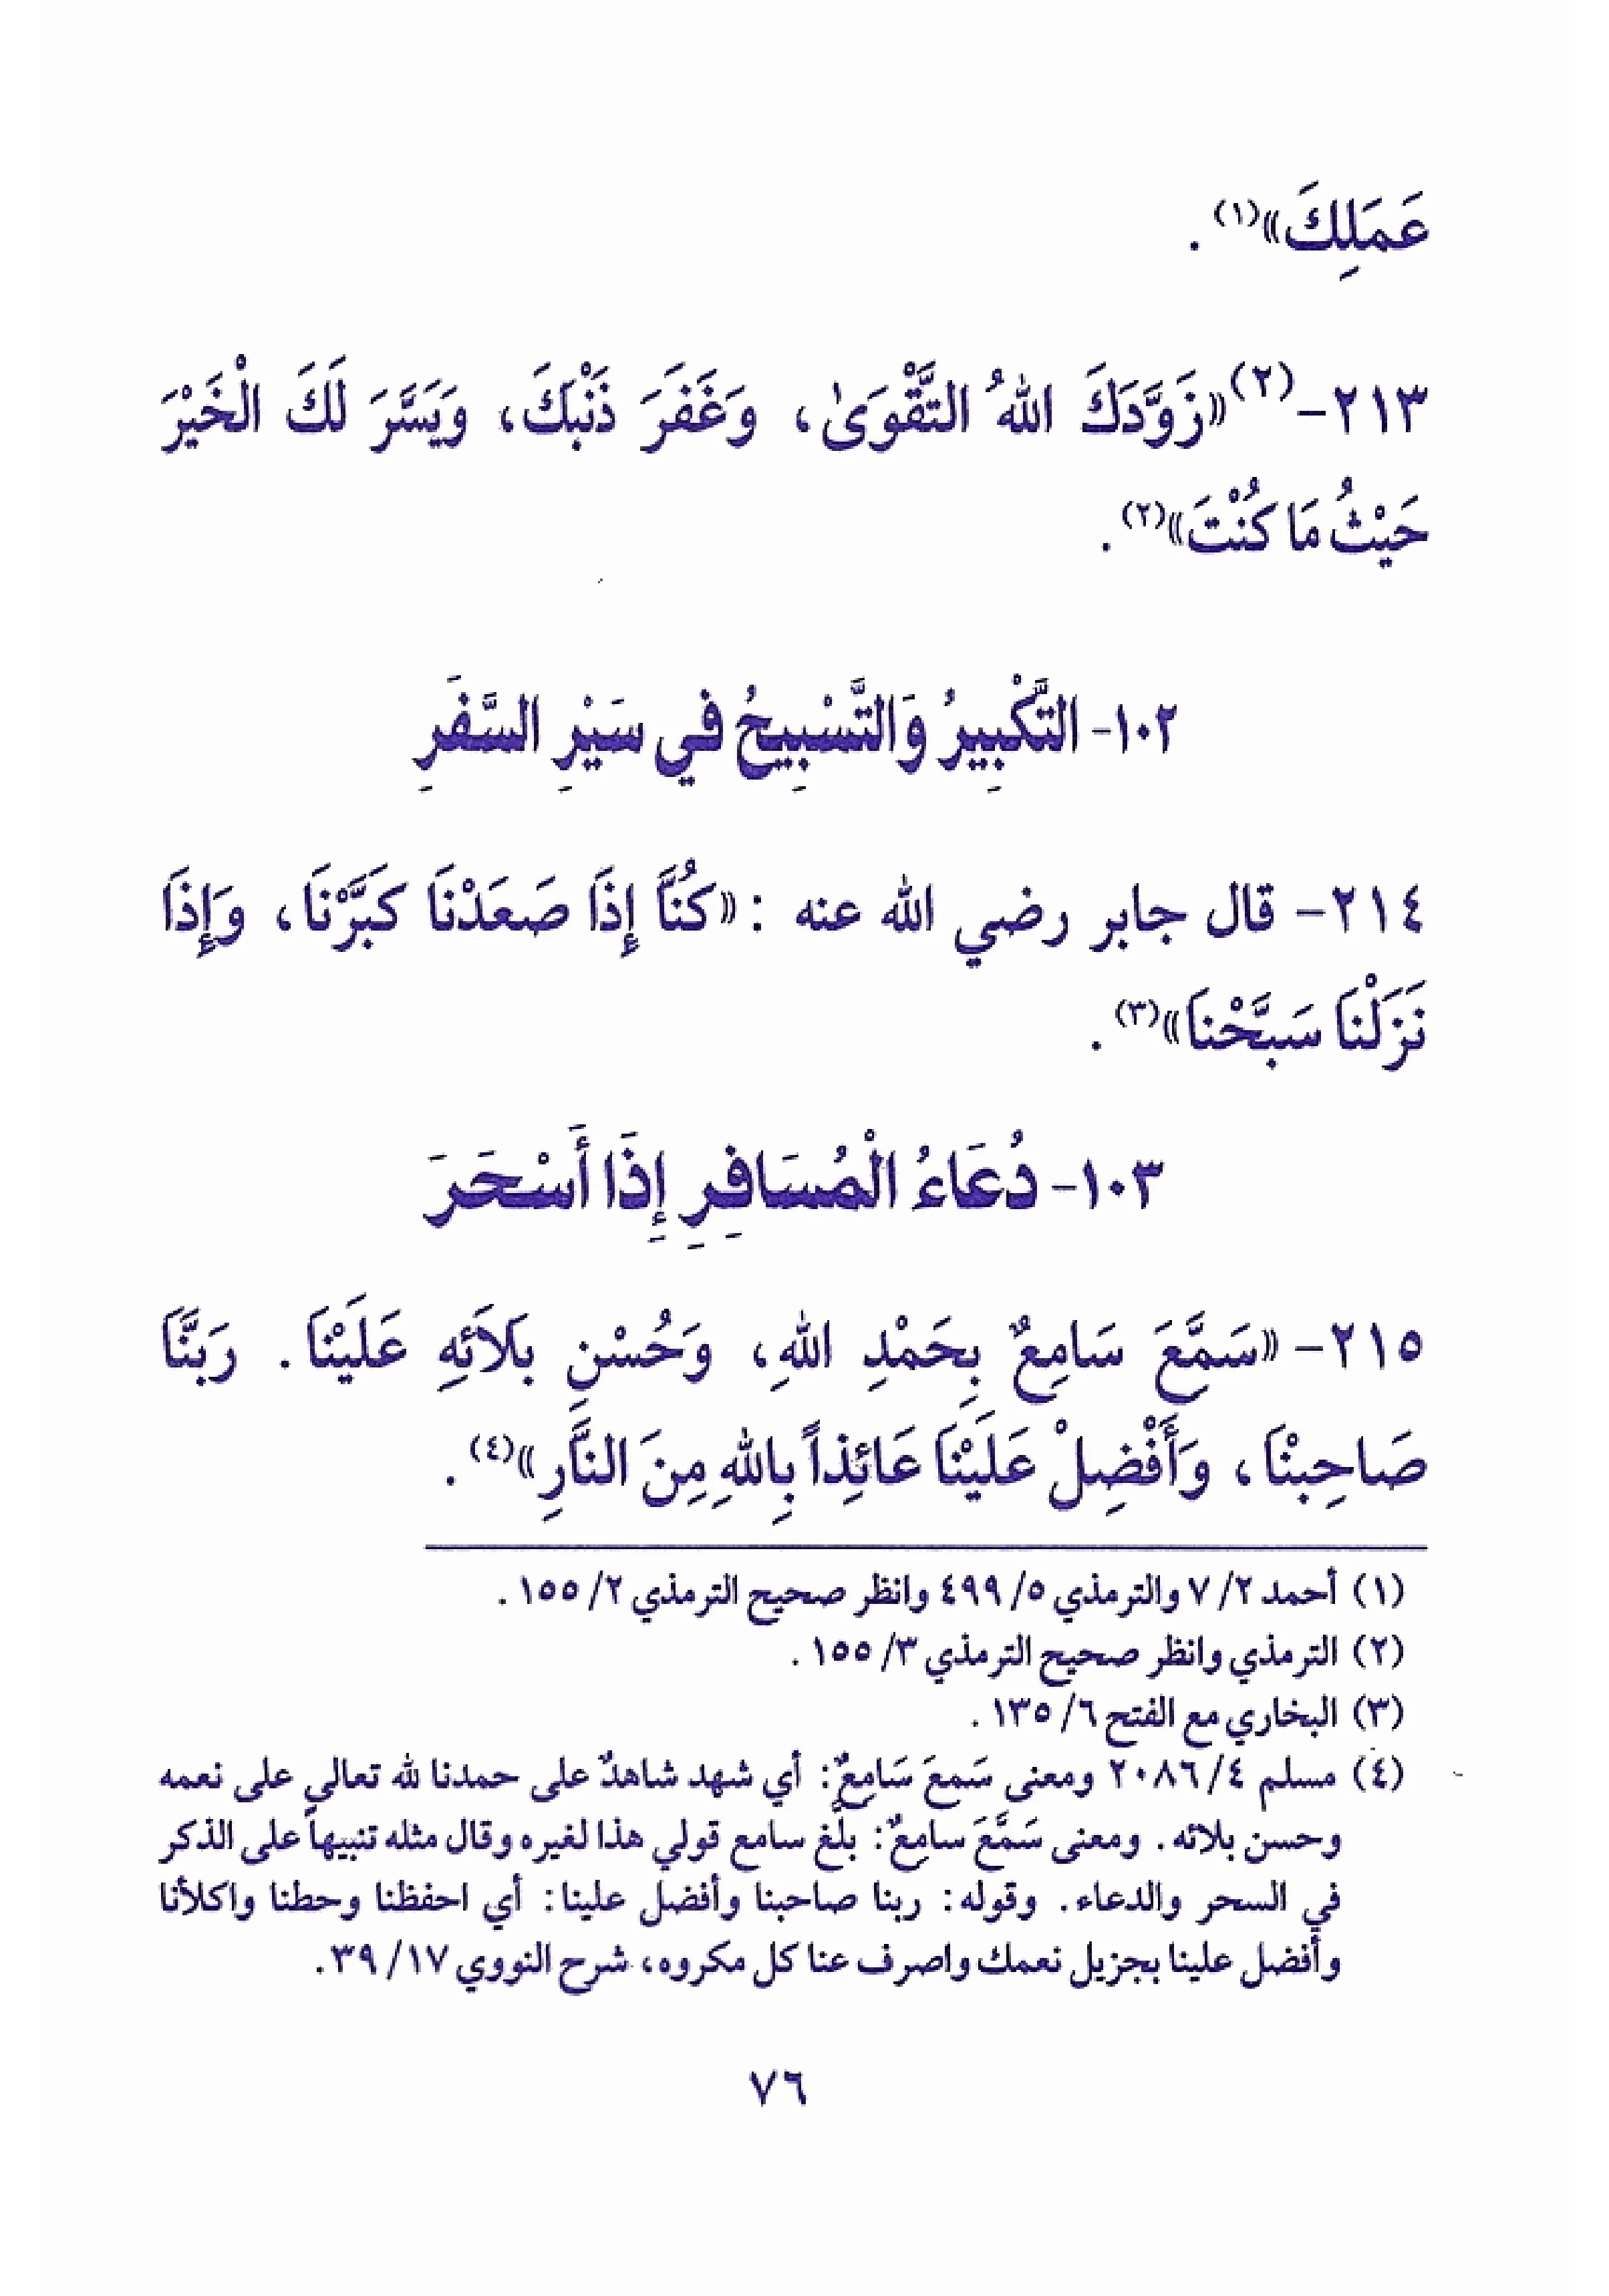 عَمَلِكَ»(١) .
٢١٣-(٢)«زَوَّدَكَ اللهُ التَّقْوَىٰ، وَغَفَرَ ذَنْبَكَ، وَيَسَّرَ لَكَ الْخَيْرَ
حَيْثُ مَا كُنْتَ»(٢) .
١٠٢- التَّكْبِيرُ وَالتَّسْبِيحُ في سَيْرِ السَّفَرِ
٢١٤- قال جابر رضي الله عنه : «كُنَّا إِذَا صَعَدْنَا كَبَّرْنَا، وَإِذَا
نَزَلْنَا سَبَّحْنَا»(٣) .
١٠٣- دُعَاءُ الْمُسَافِرِ إِذَا أَسْحَرَ
٢١٥- «سَمَّعَ سَامِعٌ بِحَمْدِ اللهِ، وَحُسْنِ بَلاَئِهِ عَلَيْنَا. رَبَّنَا
صَاحِبْنَا، وَأَفْضِلْ عَلَيْنَا عَائِذاً بِاللهِ مِنَ النَّارِ»(٤) .
(١) أحمد ٢/ ٧ والترمذي ٥/ ٤٩٩ وانظر صحيح الترمذي ٢/ ١٥٥ .
(٢) الترمذي وانظر صحيح الترمذي ٣/ ١٥٥ .
(٣) البخاري مع الفتح ٦/ ١٣٥ .
(٤) مسلم ٤/ ٢٠٨٦ ومعنى سَمعَ سَامِعٌ: أي شهد شاهدٌ على حمدنا لله تعالى على نعمه
وحسن بلائه. ومعنى سَمَّعَ سامِعٌ: بلَّغ سامع قولي هذا لغيره وقال مثله تنبيهاً على الذكر
في السحر والدعاء. وقوله: ربنا صاحبنا وأفضل علينا: أي احفظنا وحطنا واكلأنا
وأفضل علينا بجزيل نعمك واصرف عنا كل مكروه، شرح النووي ١٧/ ٣٩.
٧٦